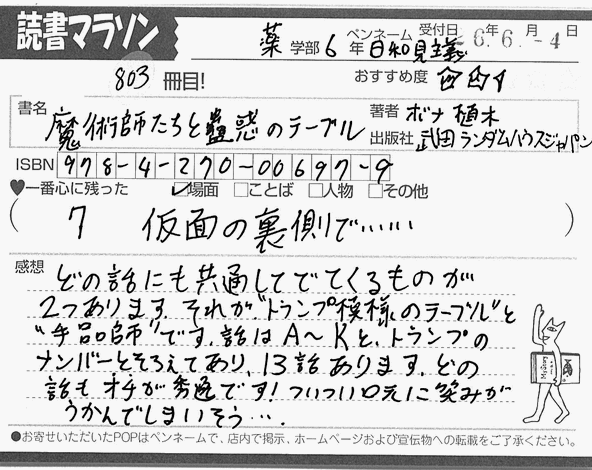 読書マラソン
薬 学部 6 年 ペンネーム 日和見主義 受付日 6年6月-4日
803 冊目! おすすめ度
書名 魔術師たちと蠱惑のテーブル 著者 ボナ植木
出版社 武田ランダムハウスジャパン
ISBN 978-4-270-00697-9
♥一番心に残った ☑場面 □ことば □人物 □その他
( 7 仮面の裏側で…… )
感想 どの話にも共通してでてくるものが
2つあります。それが"トランプ模様のテーブル"と
"手品師"です。話はA〜Kと、トランプの
ナンバーとそろえてあり、13話あります。どの
話もオチが秀逸です!ついつい口元に笑みが
うかんでしまいそう…。
●お寄せいただいたPOPはペンネームで、店内で掲示、ホームページおよび宣伝物への転載をご了承ください。